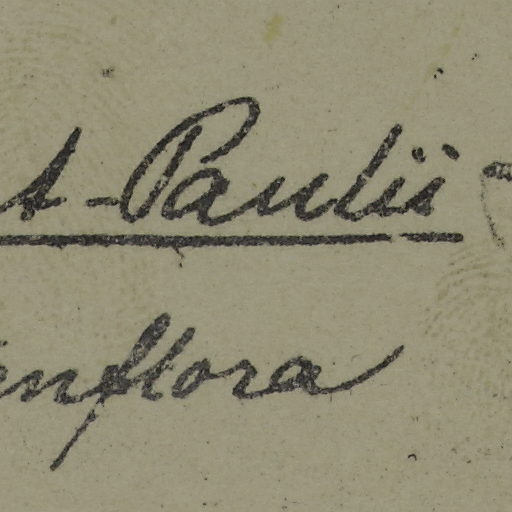 t-Paulii
enflora